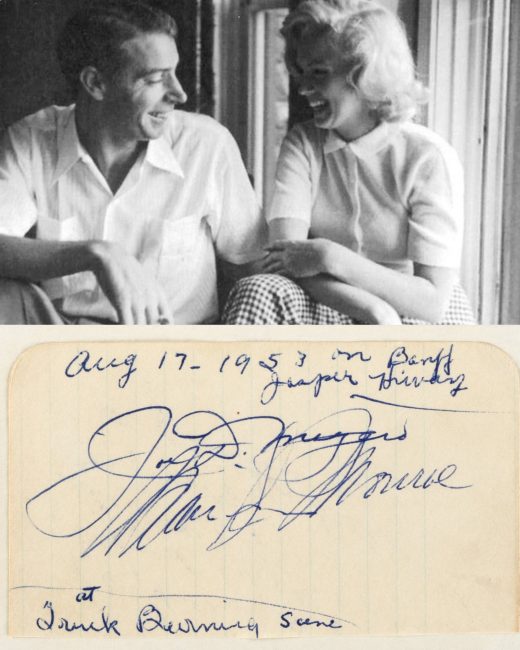 Aug 17 - 1953 on Banff
Jasper Hiway
Joe DiMaggio
Marilyn Monroe
at
Trunk Burning Scene